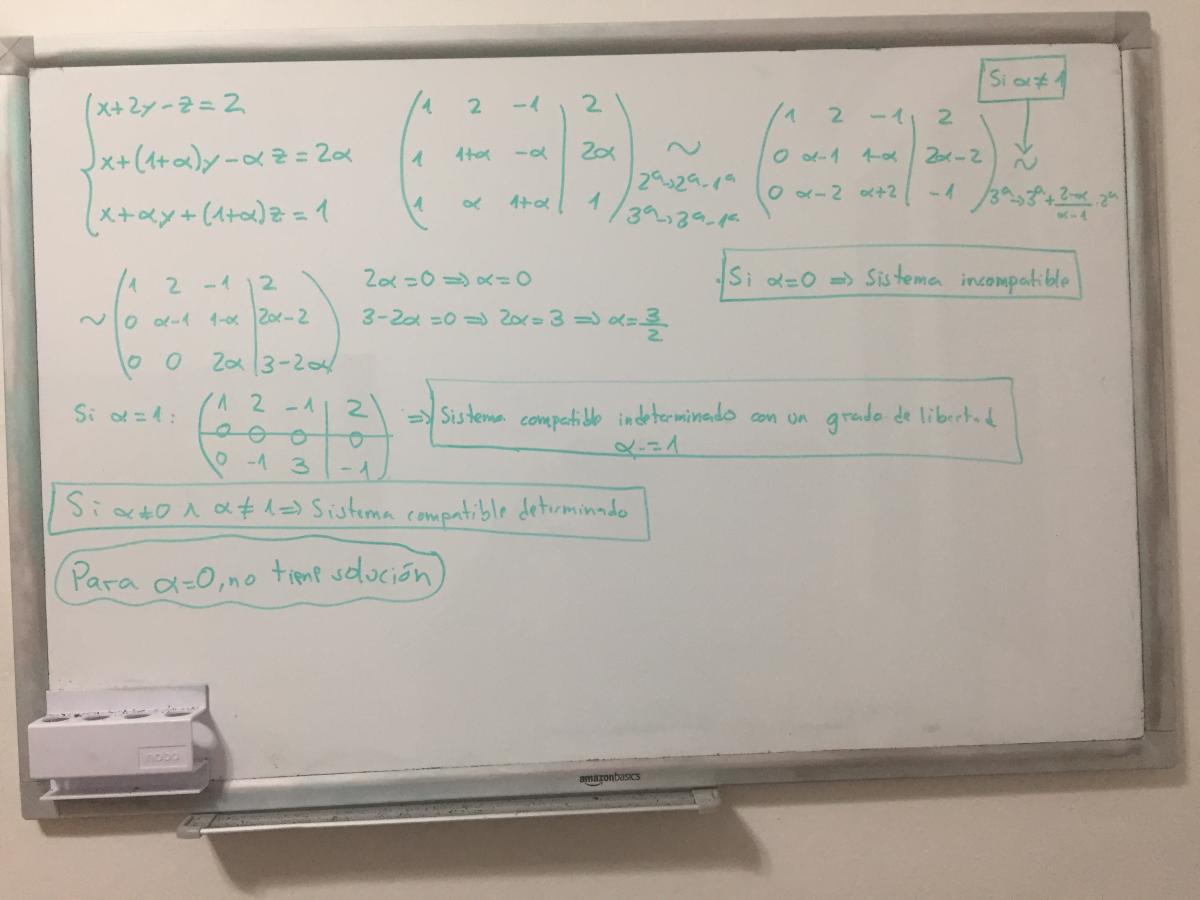 x+2y-z=2
x+(1+α)y-αz=2α
x+αy+(1+α)z=1
1 2 -1 | 2
1 1+α -α | 2α
1 α 1+α | 1
~
2ª→2ª-1ª
3ª→3ª-1ª
1 2 -1 | 2
0 α-1 1-α | 2α-2
0 α-2 α+2 | -1
Si α≠1
~
3ª→3ª+(2-α)/(α-1)·2ª
~
1 2 -1 | 2
0 α-1 1-α | 2α-2
0 0 2α | 3-2α
2α=0⇒α=0
3-2α=0⇒2α=3⇒α=3/2
Si α=0⇒Sistema incompatible
Si α=1:
1 2 -1 | 2
0 0 0 | 0
0 -1 3 | -1
⇒Sistema compatible indeterminado con un grado de libertad
α-=1
Si α≠0 ∧ α≠1⇒Sistema compatible determinado
Para α=0, no tiene solución
nobo
amazonbasics